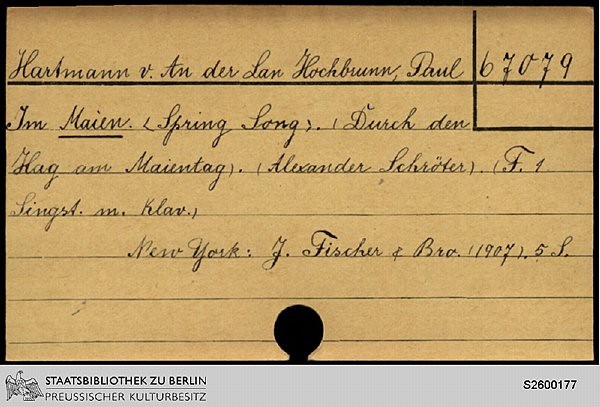 Hartmann v. An der Lan Hochbrunn, Paul 67079
Im Maien. <Spring Song>. (Durch den
Hag am Maientag). (Alexander Schröter). (F. 1
Singst. m. Klav.)
New York: J. Fischer & Bro. (1907). 5 S.
STAATSBIBLIOTHEK ZU BERLIN
PREUSSISCHER KULTURBESITZ
S2600177